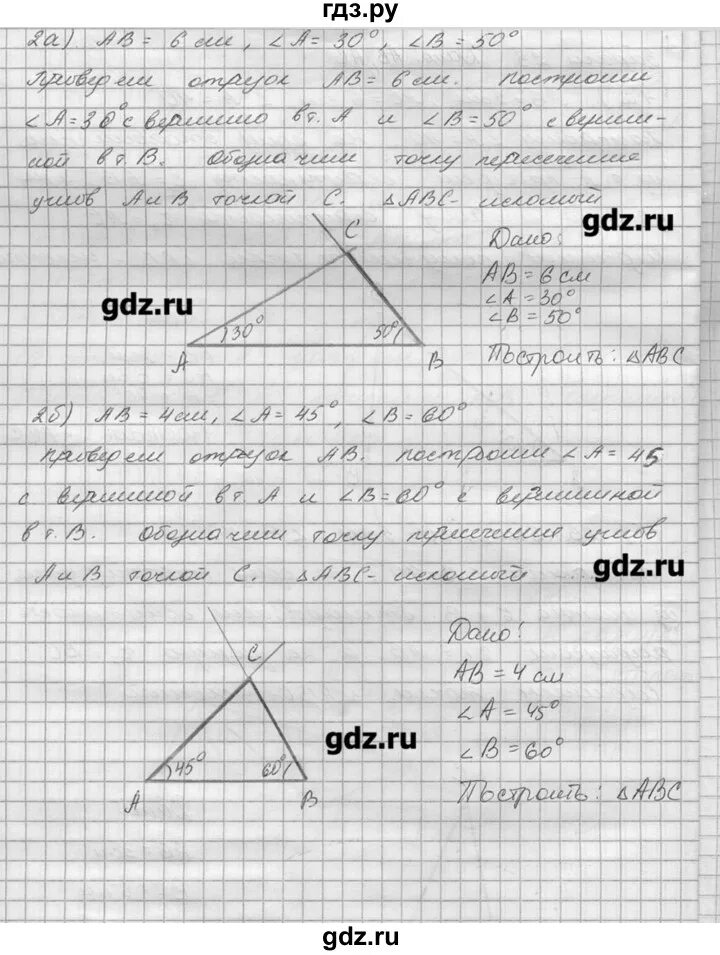 гдз.ру
2а) АВ = 6 см, ∠А = 30°, ∠В = 50°
Проведем отрезок АВ = 6 см. построим
∠А = 30° с вершино в т. А и ∠В = 50° с верши-
ной в т. В. Обозначим точку пересечение
углов А и В точкой С. △АВС - искомый
gdz.ru
С
Дано:
АВ = 6 см
∠А = 30°
∠В = 50°
Построить: △АВС
gdz.ru
30°
50°
А
В
2б) АВ = 4 см, ∠А = 45°, ∠В = 60°
проведем отрезок АВ. построим ∠А = 45
с вершиной в т. А и ∠В = 60° с вершиной
в т. В. Обозначим точку пересечение углов
А и В точкой С. △АВС - искомый
gdz.ru
С
Дано:
АВ = 4 см
∠А = 45°
∠В = 60°
Построить: △АВС
gdz.ru
45°
60°
А
В
gdz.ru